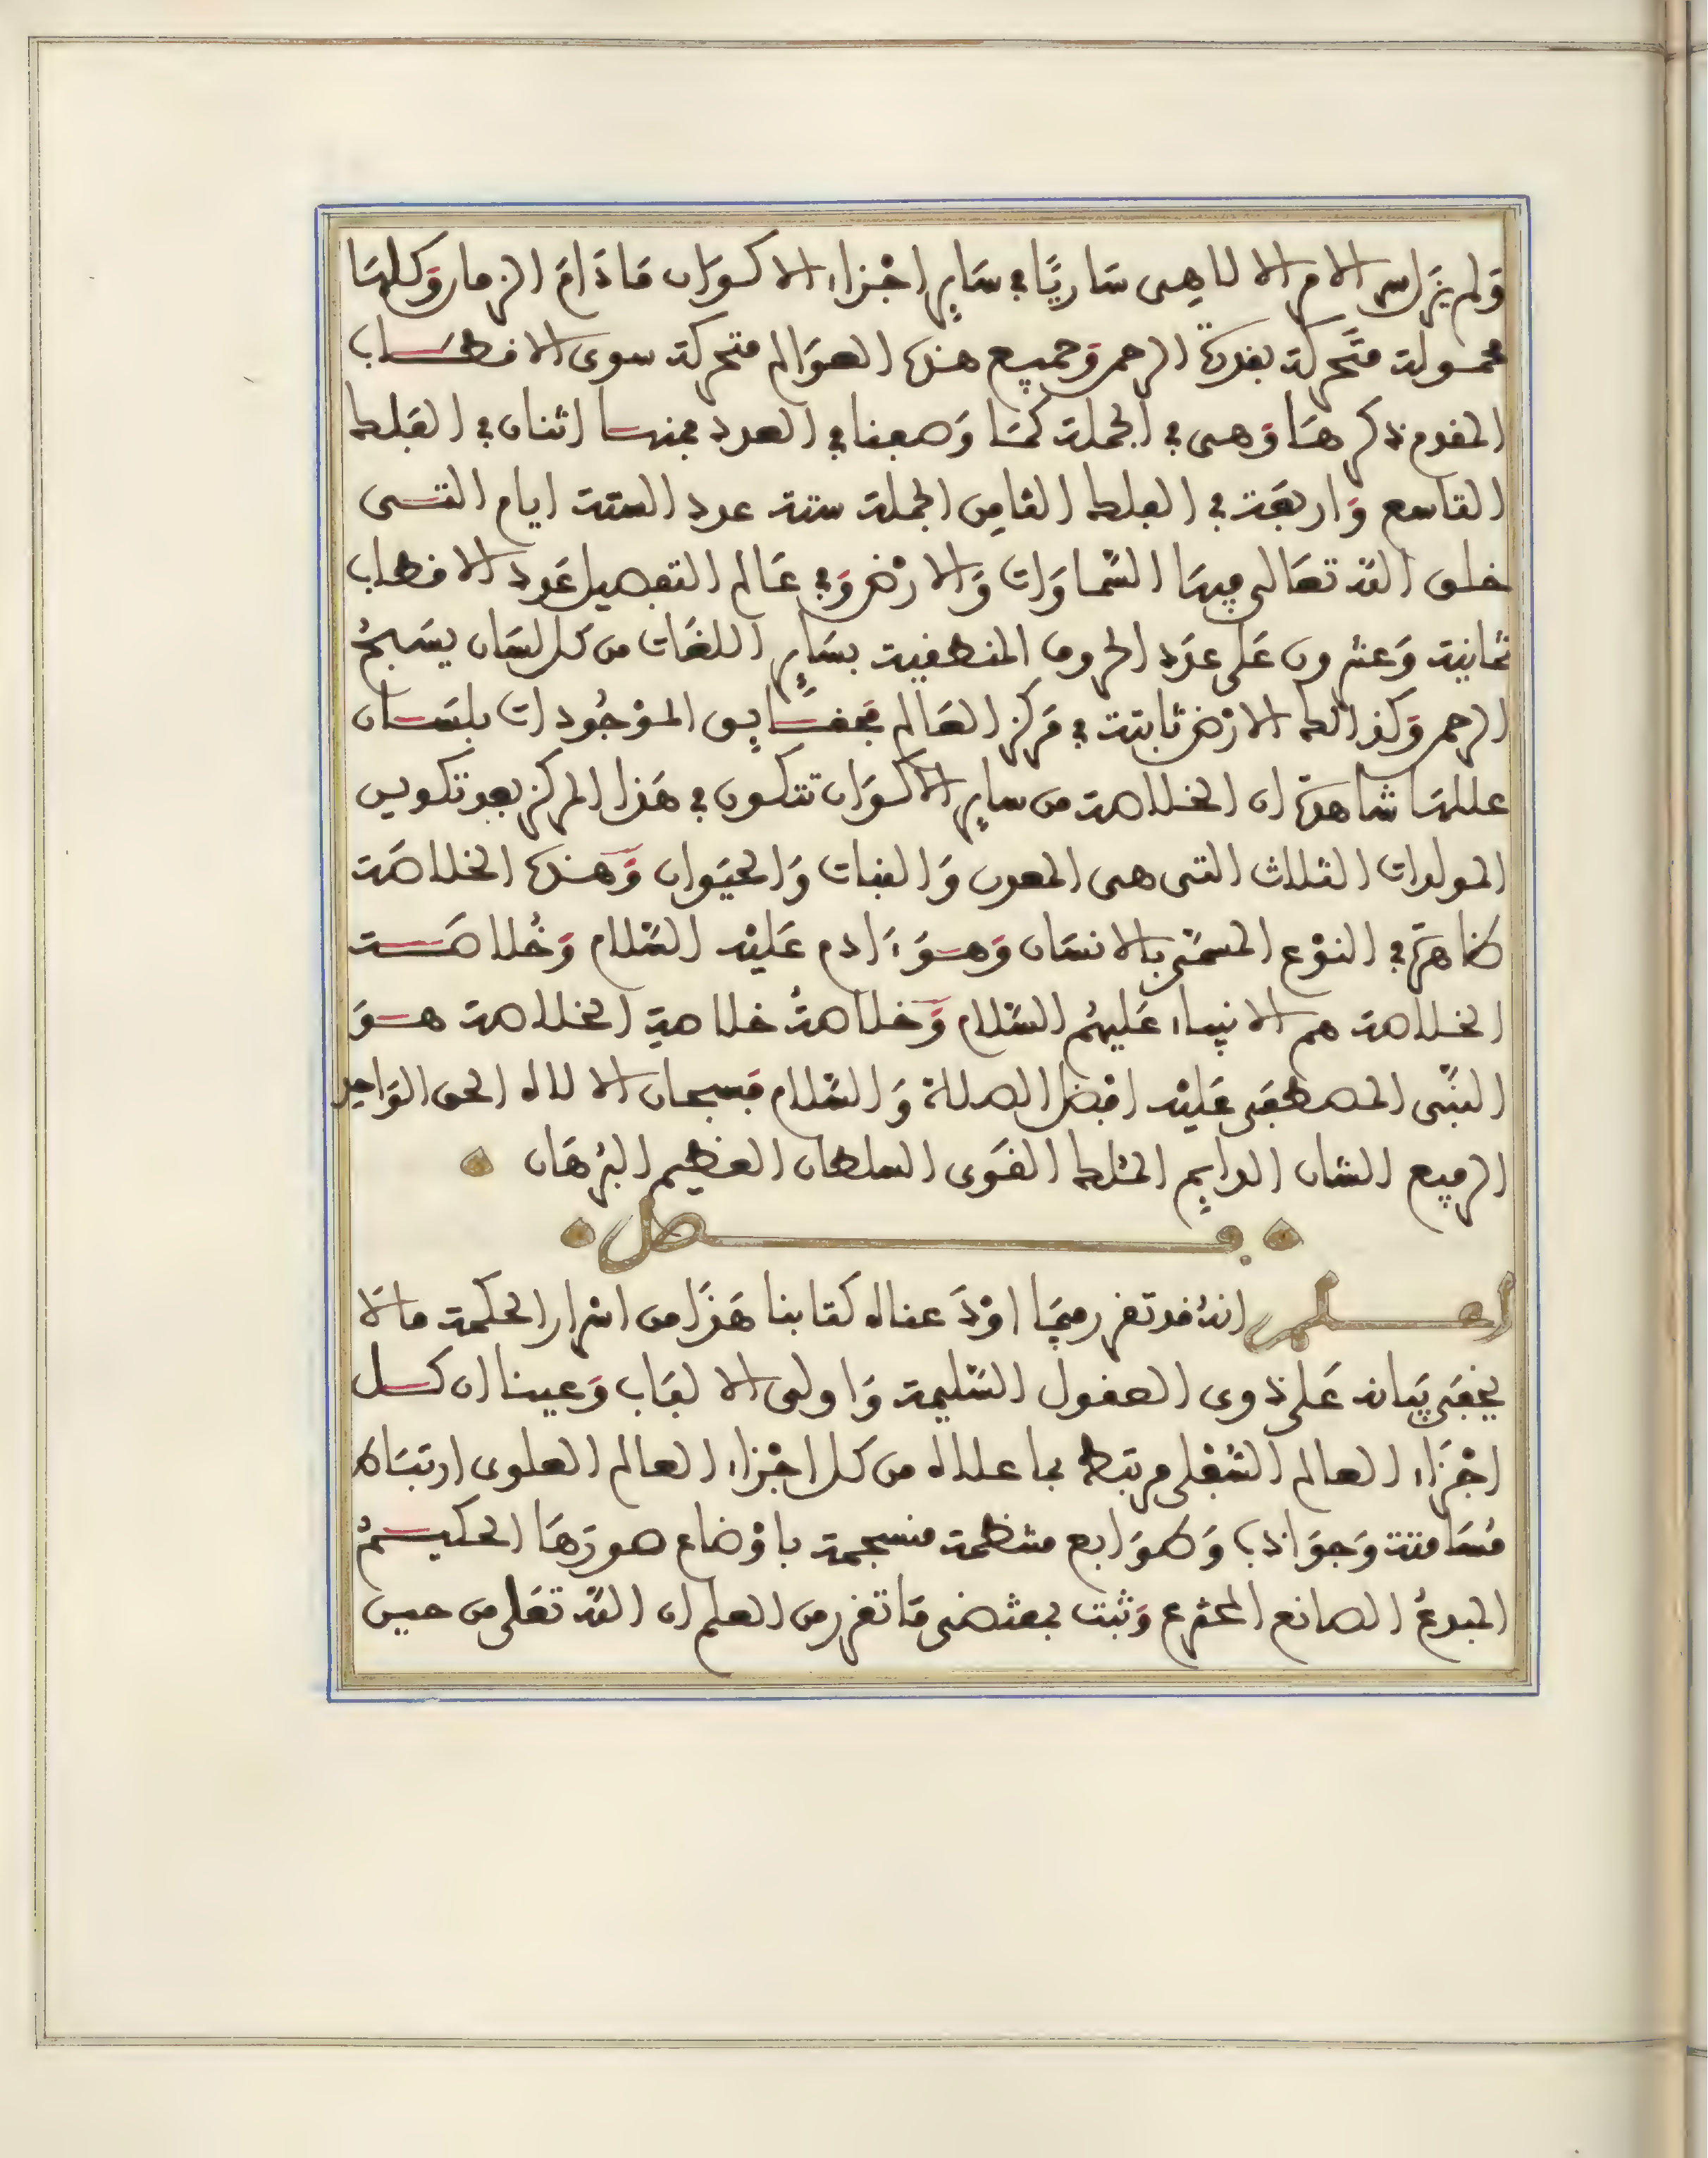 وَلم يزَل سر الامر الالاهِى سَاريًا في سَايِرِ اجْزاء الاكوَان مَادَامَ الزمان وَكلهَا
محمولة متَحركة بقدرة الرحمن وَجميع هذه العوَالم متحركة سوى الاقطاب
المقدم ذكرهَا وَهى في الجملة كمَا وَصفنا في العدد فمنها اثنان في الفَلك
التاسع وَاربعَة في الفلك الثامِن الجملة ستة عدد الستة ايام التى
خلق الله تعَالى فيهَا السَّماوَات وَالارْض وَفي عَالم التفصيل عَدد الاقطاب
ثمانية وَعشرون عَلى عدَد الحروف المنطقية بسَايِر اللغَات من كل لسَان يسَبحُ
الرحمن وَكذالك الارْض ثابتة في مَركز العَالم فحقَايِق الموْجُودات بلسَان
عللهَا شاهدَة ان الخلاصة من سايِر الاكوَان تتكون في هَذا المركز بعد تكوين
المولدات الثلاث التى هى المعدن وَالنبات وَالحيَوان وَهذه الخلاصَة
ظاهرَة في النوْع المسَمَّى بالانسَان وَهوَ ءَادم عَليْه السَّلام وَخُلاصَة
الخلاصة هم الانبياء عَليهمُ السَّلام وَخلاصةُ خلاصةِ الخلاصة هوَ
النبَّى المصطفَى عَليْه افْضَل الصلاة وَالسَّلام فسبحان الالاه الحى الوَاحِد
الرفيع الشان الدايِم الملك القَوى السلطان العظِيم البُرْهَان
فصل
اعلم انهُ قد تقرر فيمَا اوْدَعناه كتابنا هَذَا من اسْرار الحكمة ما لا
يخفَى بيَانه عَلى ذوى العقول السَّليمة وَاولى الالبَاب وَعينا ان كل
اجْزَاء العالم السُّفْلى مرتبط بما علاه من كل اجْزاء العالم العلوى ارتبَاط
مُسَامتة وَجوَاذب وَطوَابع منتظمة منسجمة باوْضاع صورَهَا الحكيمُ
المبدعُ الصانع المخترع وَثبت بمقتضى مَا تقرر من العلم ان الله تعَلى من حين